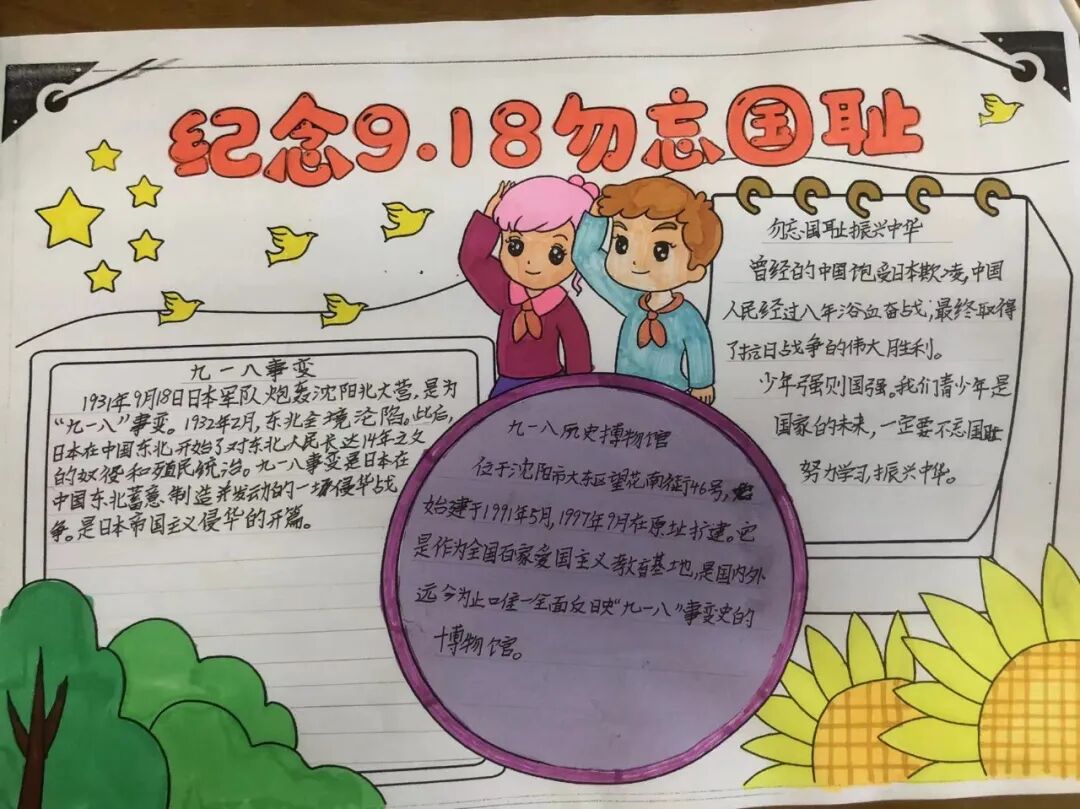 纪念9.18勿忘国耻
九一八事变
1931年9月18日日本军队炮轰沈阳北大营,是为
“九一八”事变。1932年2月,东北全境沦陷。此后,
日本在中国东北开始了对东北人民长达14年之义
的奴役和殖民统治。九一八事变是日本在
中国东北蓄意制造并发动的一场侵华战
争。是日本帝国主义侵华的开篇。
九一八历史博物馆
位于沈阳市大东区望花南街46号,
始建于1991年5月,1997年9月在原址扩建。它
是作为全国百家爱国主义教育基地,是国内外
远今为止口唯一全面反日映“九一八”事变史的
博物馆。
勿忘国耻振兴中华
曾经的中国饱受日本欺凌,中国
人民经过八年浴血奋战,最终取得
了抗日战争的伟大胜利。
少年强则国强。我们青少年是
国家的未来,一定要不忘国耻
努力学习,振兴中华。